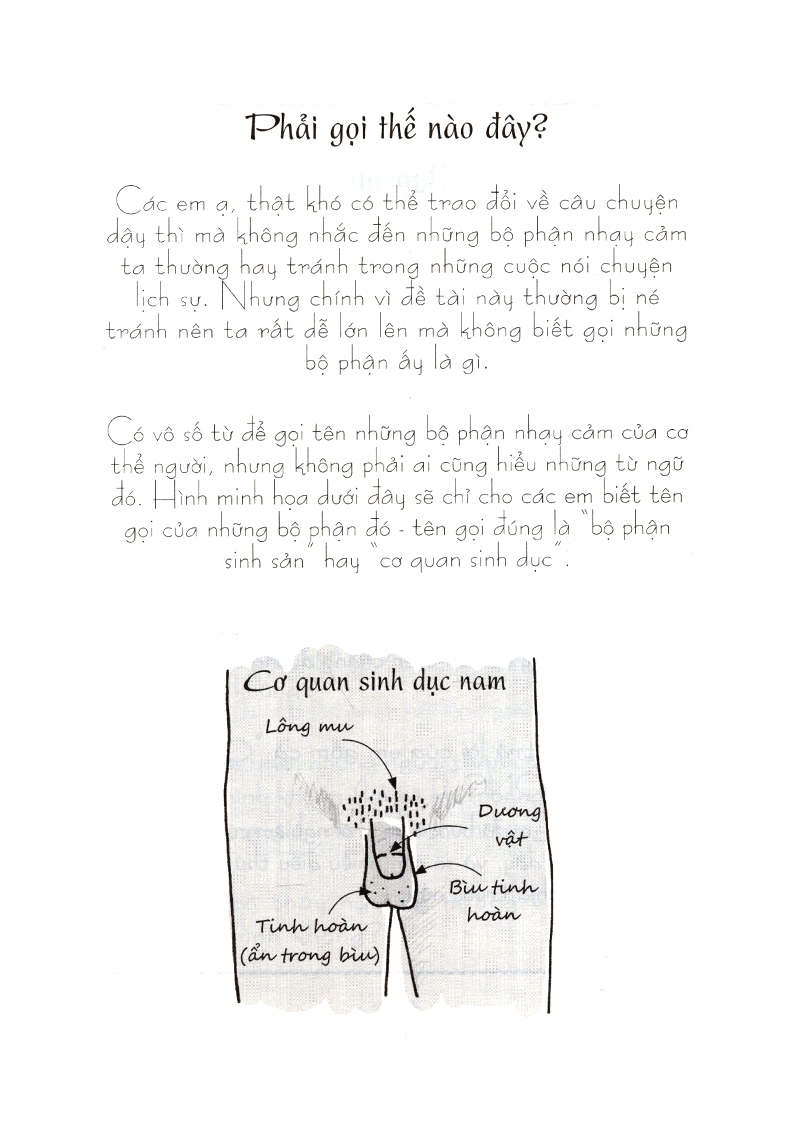 Phải gọi thế nào đây?
Các em ạ, thật khó có thể trao đổi về câu chuyện
dậy thì mà không nhắc đến những bộ phận nhạy cảm
ta thường hay tránh trong những cuộc nói chuyện
lịch sự. Nhưng chính vì đề tài này thường bị né
tránh nên ta rất dễ lớn lên mà không biết gọi những
bộ phận ấy là gì.
Có vô số từ để gọi tên những bộ phận nhạy cảm của cơ
thể người, nhưng không phải ai cũng hiểu những từ ngữ
đó. Hình minh họa dưới đây sẽ chỉ cho các em biết tên
gọi của những bộ phận đó - tên gọi đúng là “bộ phận
sinh sản” hay “cơ quan sinh dục”.
Cơ quan sinh dục nam
Lông mu
Dương
vật
Bìu tinh
hoàn
Tinh hoàn
(ẩn trong bìu)